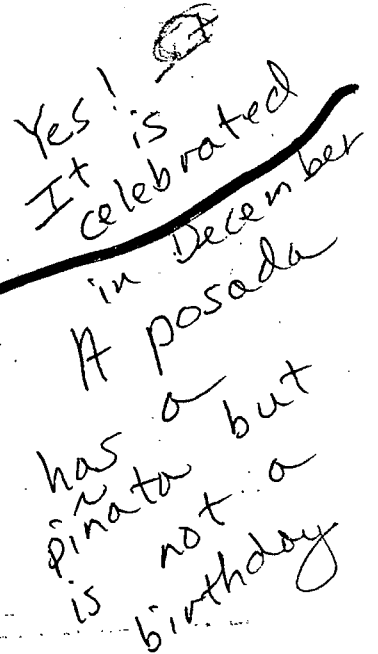 Yes!
It is
celebrated
in December
A posada
has a
piñata but
is not a
birthday